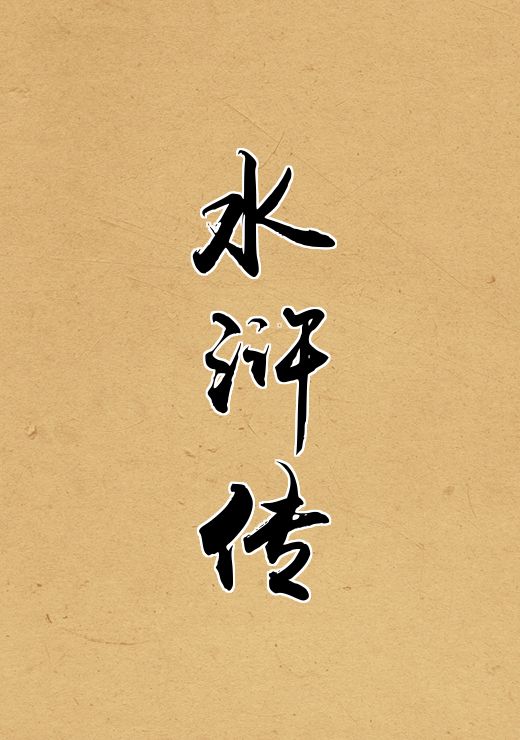 水浒传